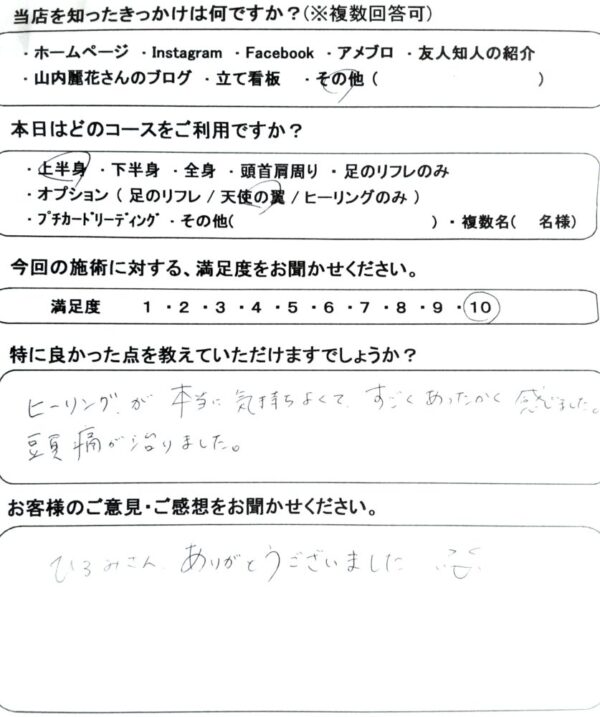 当店を知ったきっかけは何ですか？(※複数回答可)
・ホームページ ・Instagram ・Facebook ・アメブロ ・友人知人の紹介
・山内麗花さんのブログ ・立て看板 ・その他（ ）
本日はどのコースをご利用ですか？
・上半身 ・下半身 ・全身 ・頭首肩周り ・足のリフレのみ
・オプション（ 足のリフレ / 天使の翼 / ヒーリングのみ ）
・ﾌﾟﾁｶｰﾄﾞﾘｰﾃﾞｨﾝｸﾞ ・その他( ) ・複数名( 名様)
今回の施術に対する、満足度をお聞かせください。
満足度 1 ・2 ・3 ・4 ・5 ・6 ・7 ・8 ・9 ・10
特に良かった点を教えていただけますでしょうか？
ヒーリングが 本当に気持ちよくて、すごくあったかく 感じました。
頭痛が治りました。
お客様のご意見・ご感想をお聞かせください。
ひろみさん、ありがとうございました